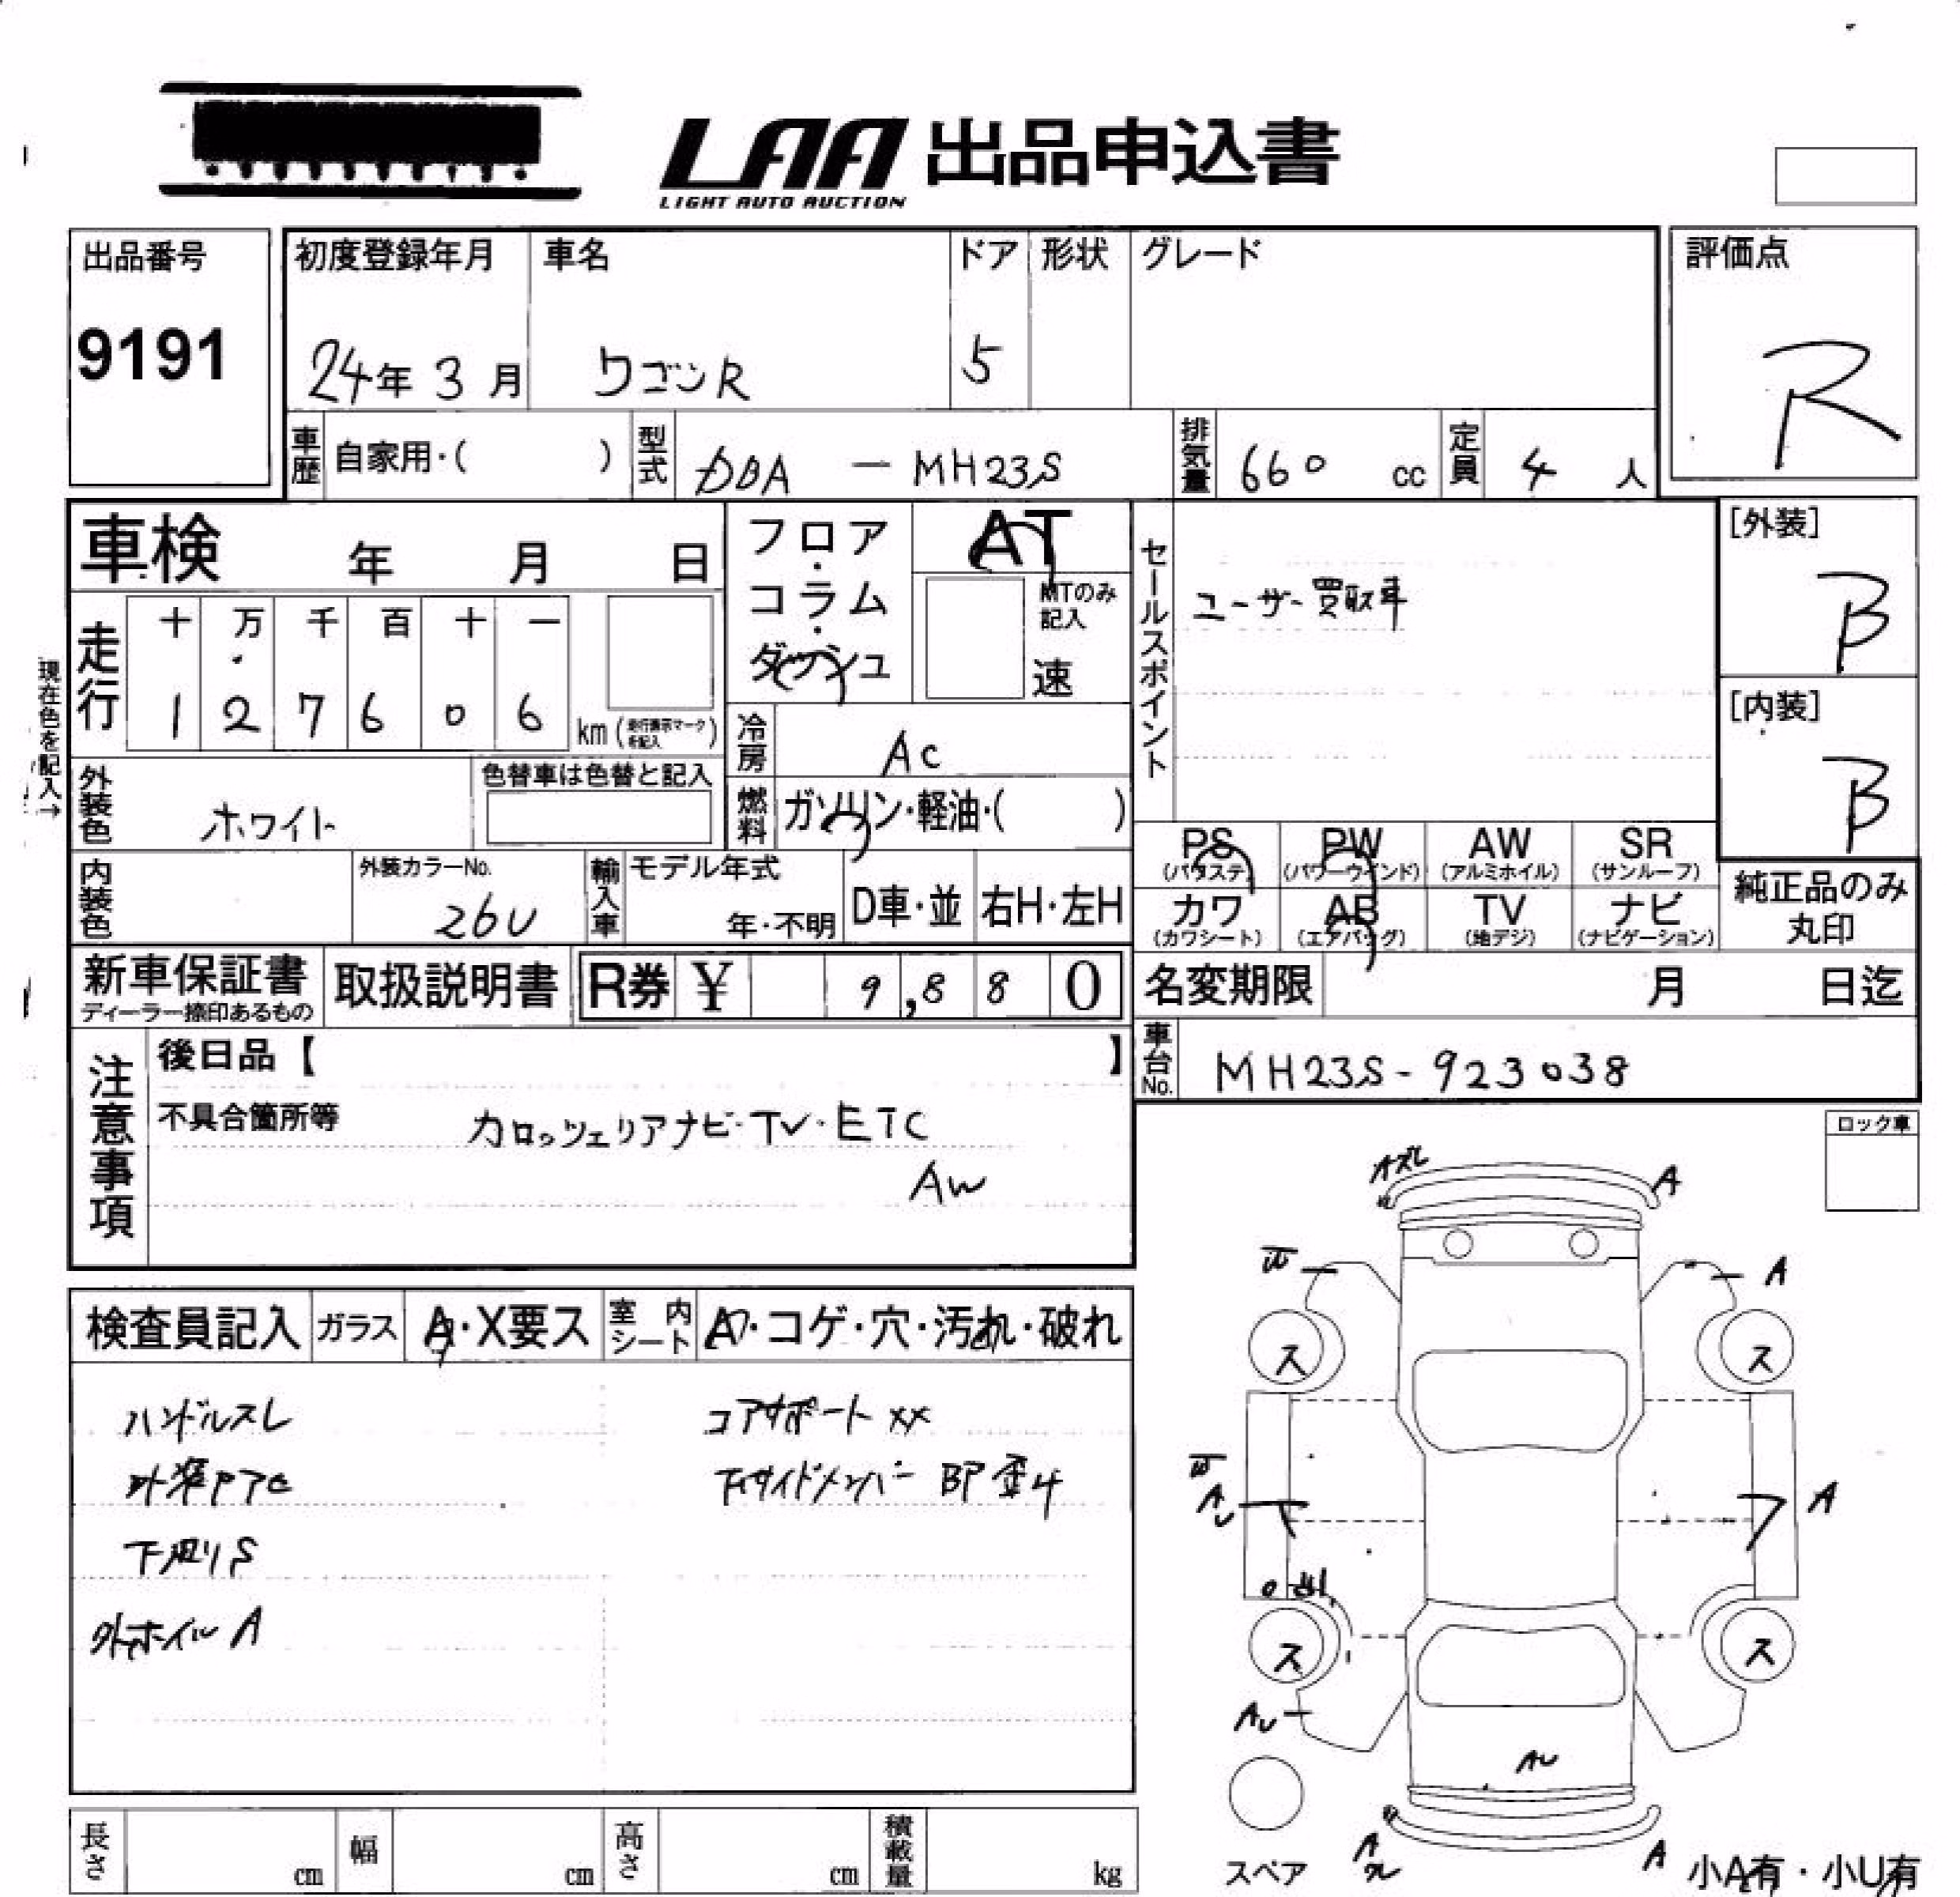 LAA 出品申込書
LIGHT AUTO AUCTION
出品番号
9191
初度登録年月
24年 3月
車名
ワゴンR
ドア
5
形状
グレード
評価点
R
車歴
自家用・( )
型式
DBA - MH23S
排気量
660 cc
定員
4 人
車検 年 月 日
フロア・コラム・ダッシュ
AT
MTのみ記入
速
セールスポイント
ユーザー買取車
[外装]
B
[内装]
B
現在色を記入→
走行
十 万 千 百 十 一
1 2 7 6 0 6 km
冷房
AC
燃料
ガソリン・軽油・( )
外装色
ホワイト
色替車は色替と記入
内装色
外装カラーNo.
26U
輸入車
モデル年式
年・不明
D車・並
右H・左H
PS (パワステ)
PW (パワーウインド)
AW (アルミホイル)
SR (サンルーフ)
カワ (カワシート)
AB (エアバッグ)
TV (地デジ)
ナビ (ナビゲーション)
純正品のみ丸印
新車保証書
ディーラー捺印あるもの
取扱説明書
R券 ¥ 9,880
名変期限 月 日迄
車台No.
MH23S-923038
注意事項
後日品【 】
不具合箇所等
カロッツェリアナビ・TV・ETC
AW
ロック車
検査員記入
ガラス
A・X要ス
室内シート
コゲ・穴・汚れ・破れ
ハンドルスレ
コアサポートXX
外ホイルA
A
A
A
ス
ス
ス
ス
AU
AU
A
スペア
小A有・小U有
長さ cm
幅 cm
高さ cm
積載量 kg